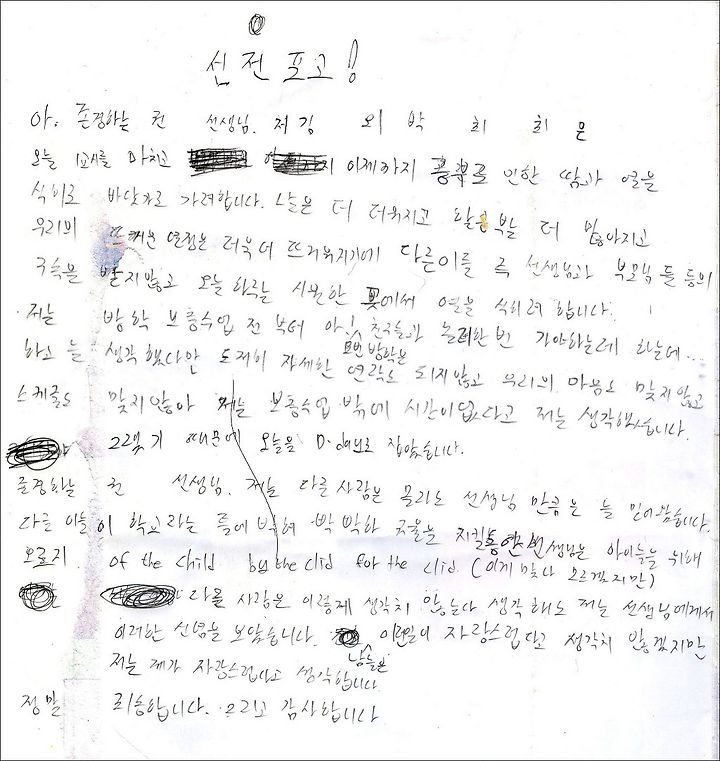 선전포고!
아. 존경하는 권 선생님. 저 김 외 박 희 희 은
오늘 1교시를 마치고 이제까지 공부로 인한 땀과 열을
식히로 바닷가로 가려합니다. 날은 더 더워지고 더 많아지고
우리의 뜨거운 열정은 더욱 더 뜨거워지기에 다른이들 즉 선생님과 부모님 들 등의
구속을 받지않고 오늘 하루 시원한 곳에서 열을 식히려 합니다.
저는 방학 보충수업 전부터 아! 친구들과 놀러한번 가야하는데 하는데...
하고 늘 생각했다만 도저히 자세한 연락도 되지않고 우리의 마음도 맞지않고
요번방학은
스케줄도 맞지않아 저는 보충수업 밖에 시간이없다고 저는 생각했습니다.
그렇기 때문에 오늘을 D-day로 잡았습니다.
존경하는 권 선생님. 저는 다른사람은 몰라도 선생님 만큼은 늘 믿어왔습니다.
다른 이들이 학교라는 틀에박혀 박박한 규율을 지킬동안 선생님은 아이들을 위해
오로지 of the child by the clid for the clid. (이게 맞나 모르겠지만)
다른 사람은 이렇게 생각치 않는다 생각해도 저는 선생님에게서
이러한 신념을 보았습니다. 이런일이 자랑스럽다고 생각치 않겠지만
남들은
저는 제가 자랑스럽다고 생각합니다
정말 죄송합니다. 그리고 감사합니다